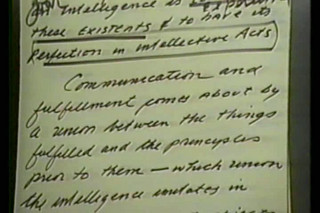 Intelligence is
these EXISTENTS & to have its
Perfection in intellective Acts
Communication and
fulfillment comes about by
a union between the things
fulfilled and the principles
prior to them — which union
the intelligence imitates in